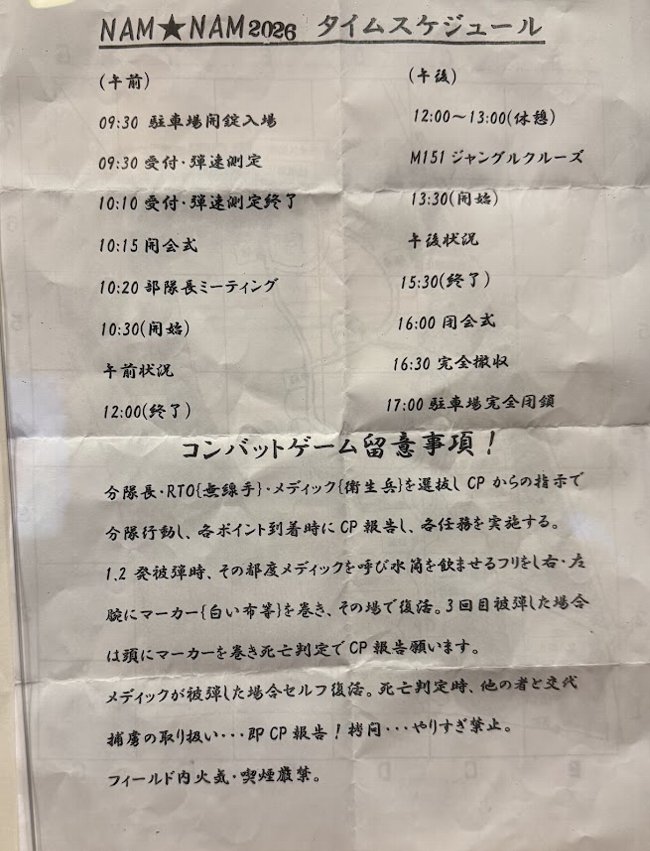 NAM★NAM2026 タイムスケジュール
(午前)
09:30 駐車場開錠入場
09:30 受付・弾速測定
10:10 受付・弾速測定終了
10:15 開会式
10:20 部隊長ミーティング
10:30(開始)
午前状況
12:00(終了)
(午後)
12:00～13:00(休憩)
M151 ジャングルクルーズ
13:30(開始)
午後状況
15:30(終了)
16:00 閉会式
16:30 完全撤収
17:00 駐車場完全閉鎖
コンバットゲーム留意事項！
分隊長・RTO{無線手}・メディック{衛生兵}を選抜し CP からの指示で
分隊行動し、各ポイント到着時に CP 報告し、各任務を実施する。
1.2 発被弾時、その都度メディックを呼び水筒を飲ませるフリをし右・左
腕にマーカー{白い布等}を巻き、その場で復活。3回目被弾した場合
は頭にマーカーを巻き死亡判定で CP 報告願います。
メディックが被弾した場合セルフ復活。死亡判定時、他の者と交代
捕虜の取り扱い・・・即 CP 報告！拷問・・・やりすぎ禁止。
フィールド内火気・喫煙厳禁。